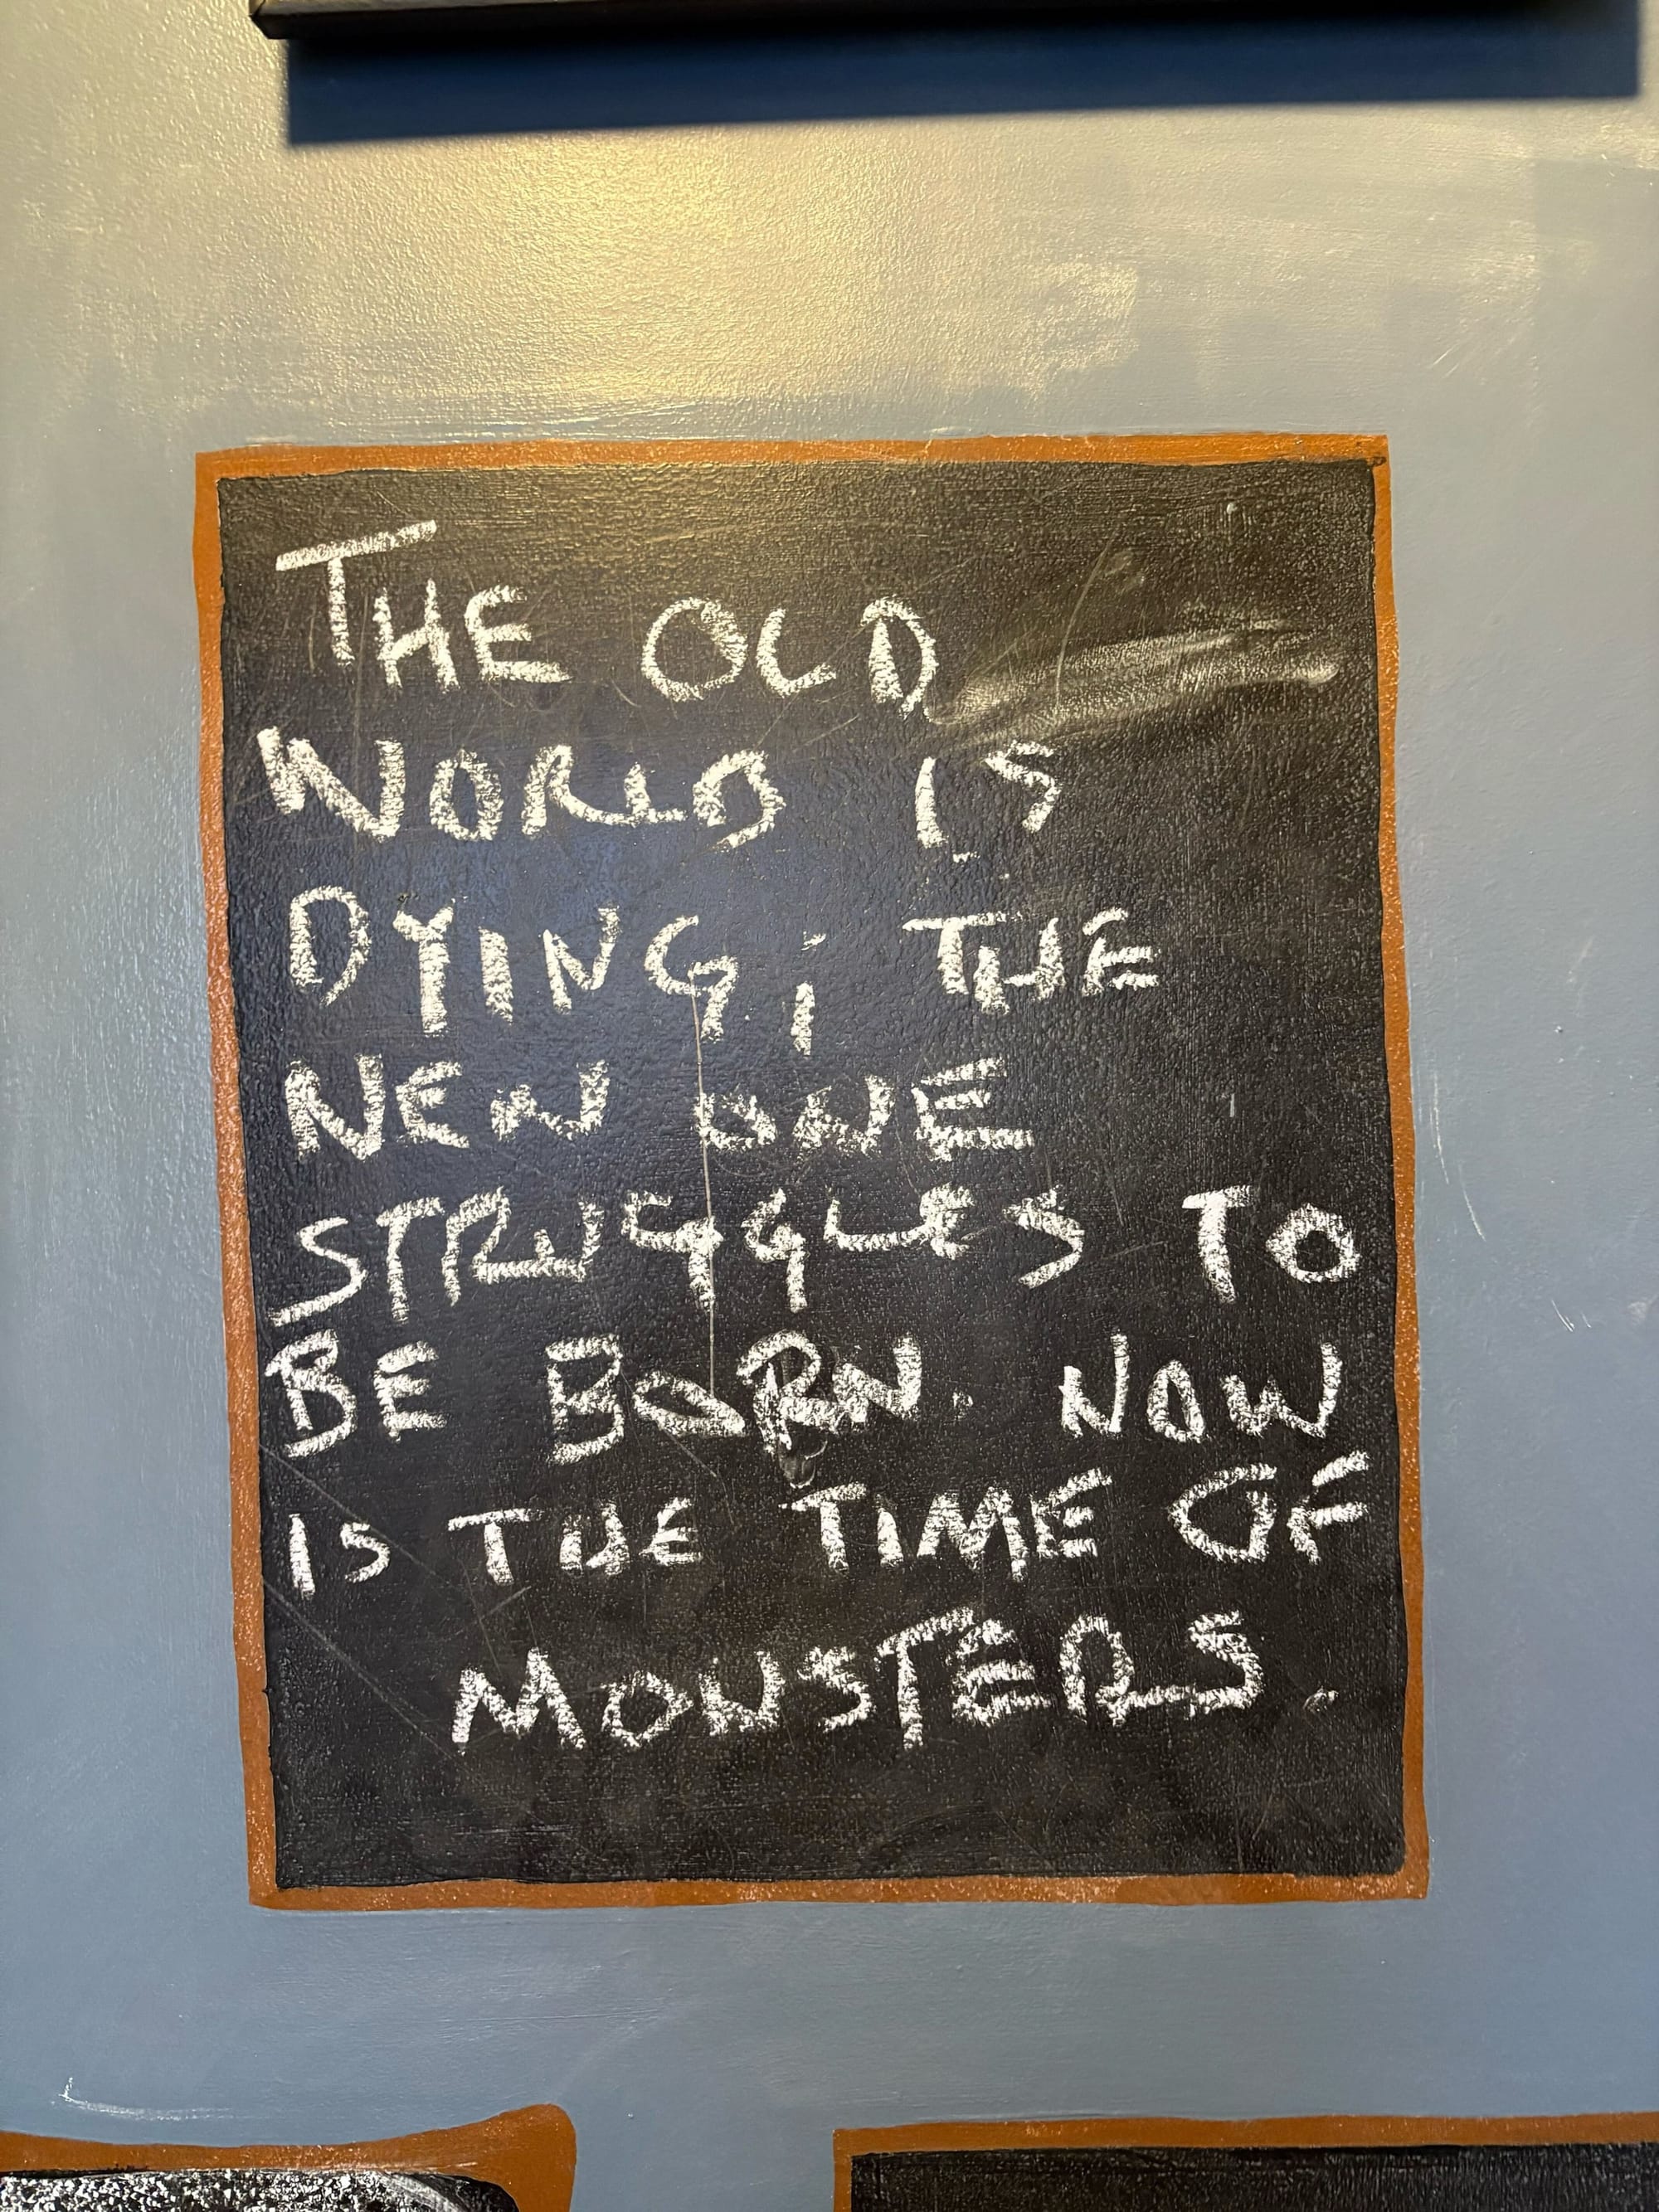 THE OLD
WORLD IS
DYING; THE
NEW ONE
STRUGGLES TO
BE BORN. NOW
IS THE TIME OF
MONSTERS.